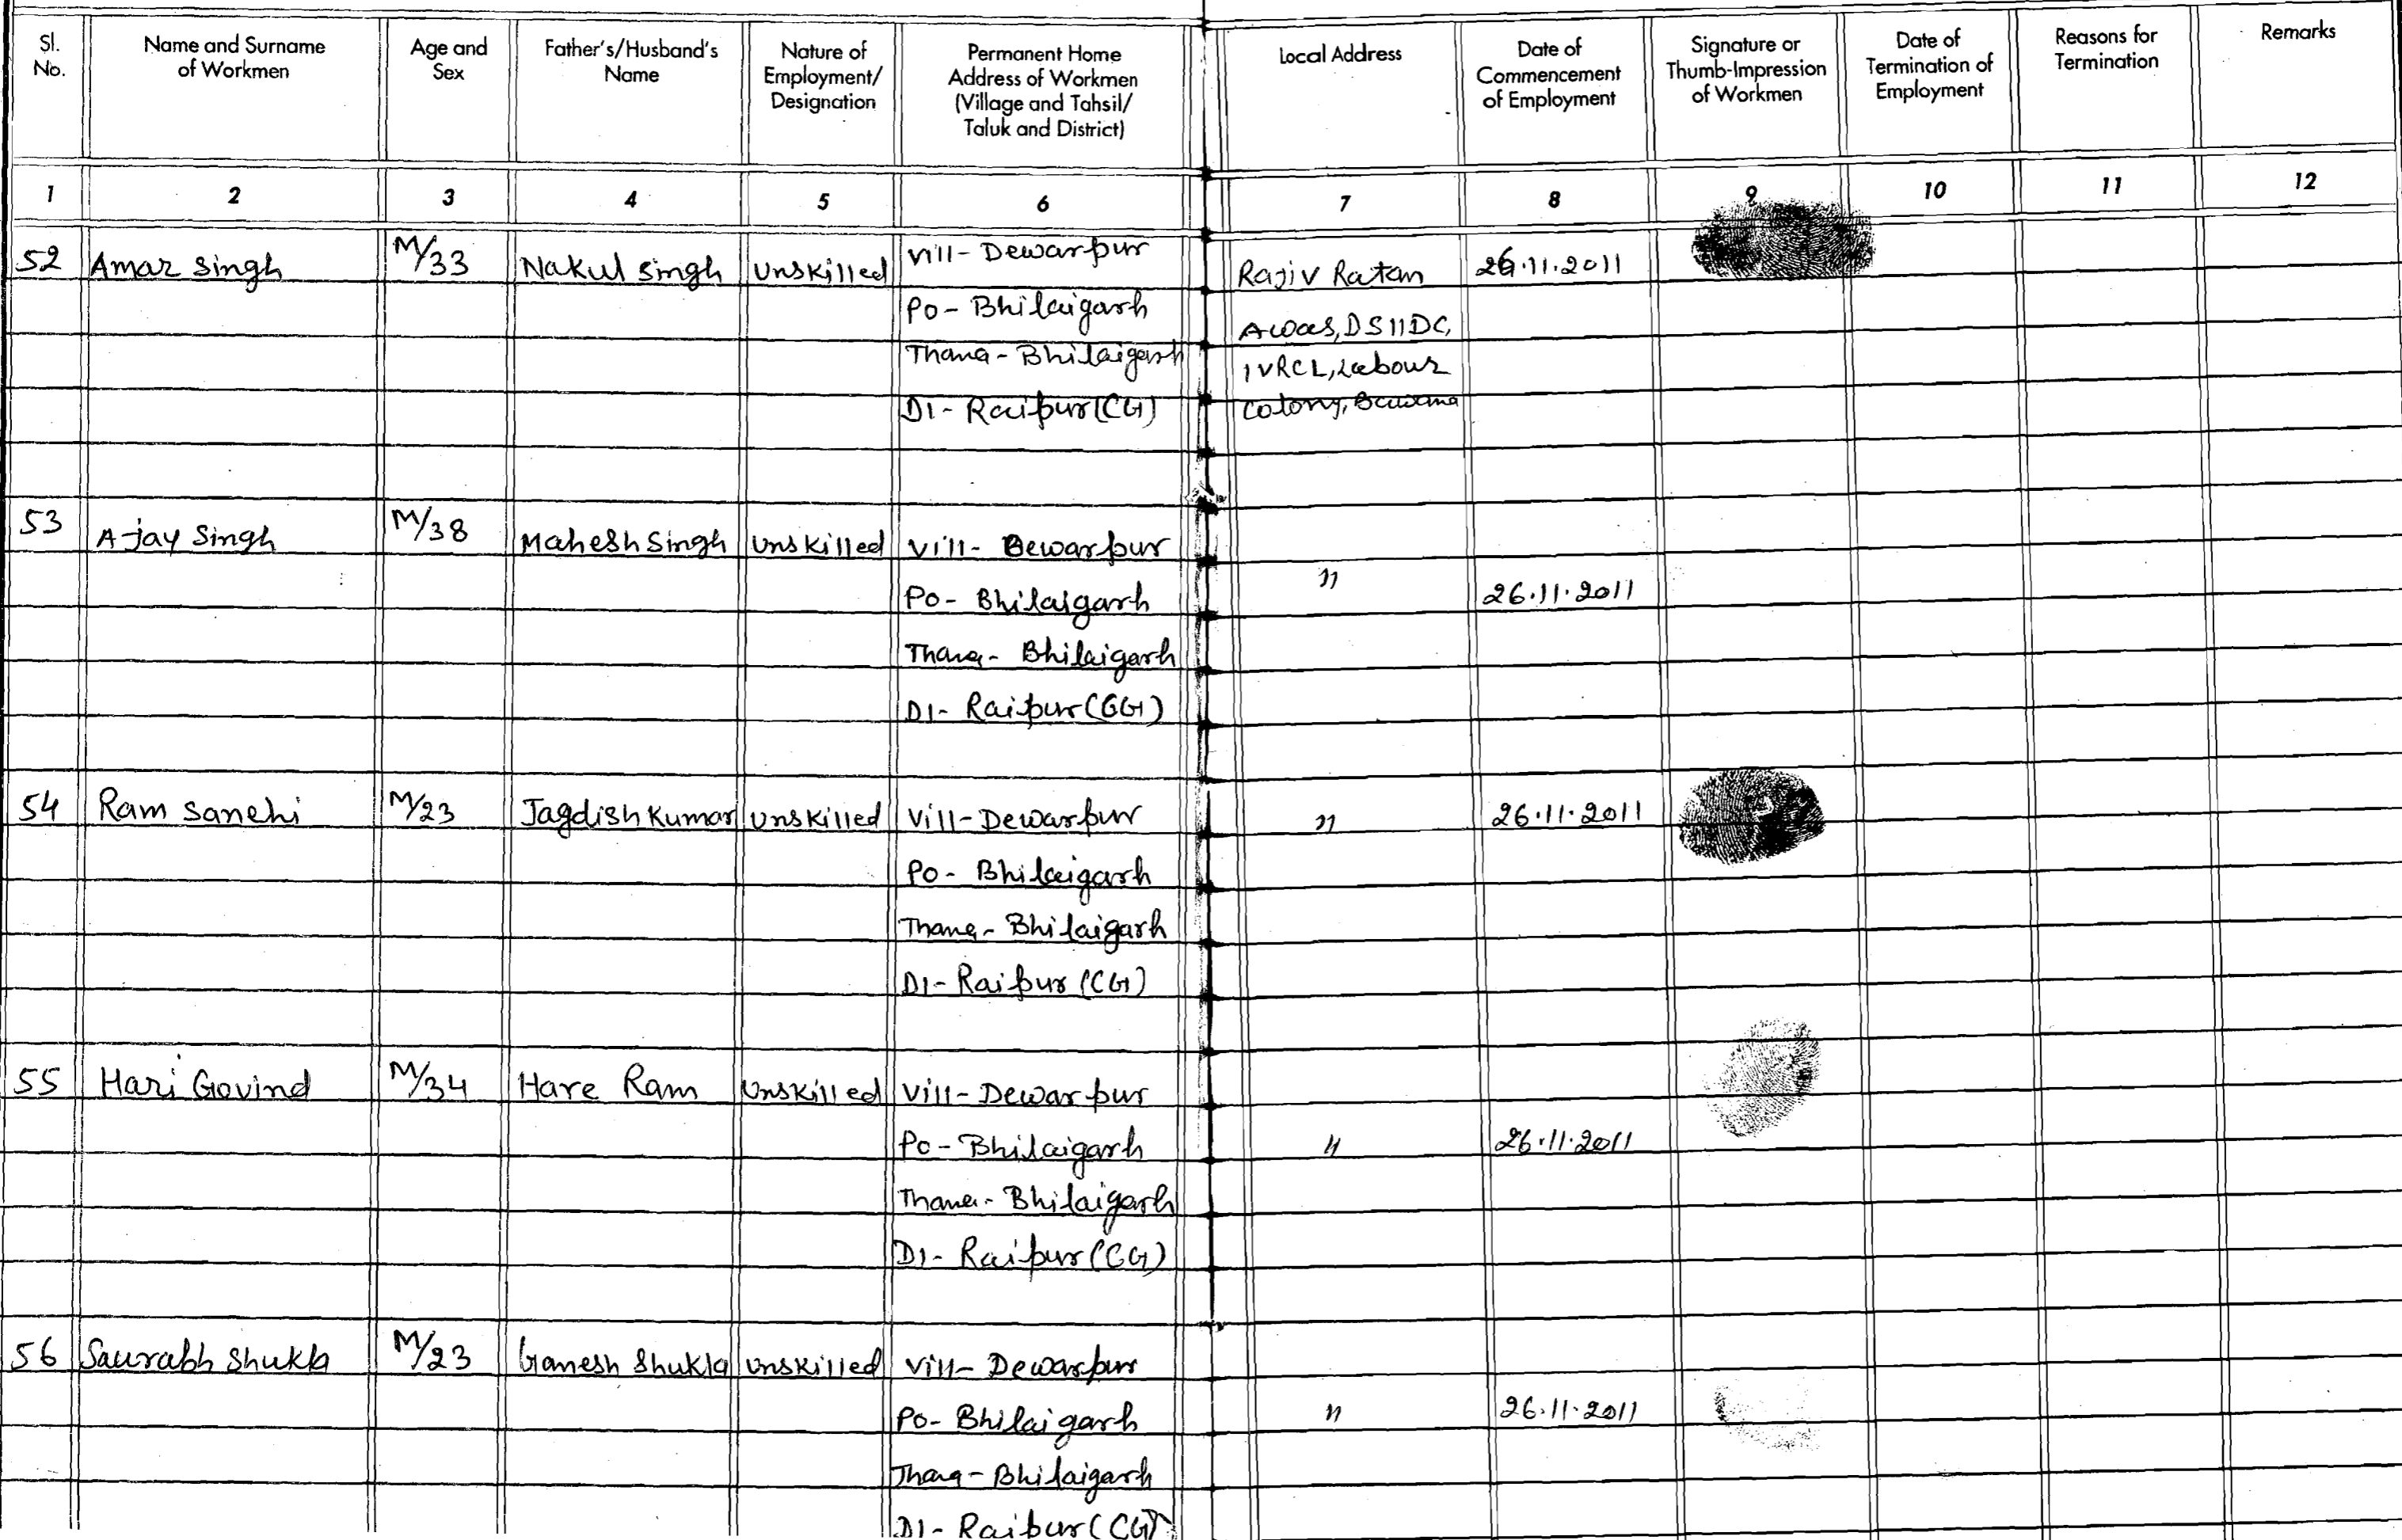 Sl. No. Name and Surname of Workmen Age and Sex Father's/Husband's Name Nature of Employment/ Designation Permanent Home Address of Workmen (Village and Tahsil/ Taluk and District) Local Address Date of Commencement of Employment Signature or Thumb-Impression of Workmen Date of Termination of Employment Reasons for Termination Remarks
1 2 3 4 5 6 7 8 9 10 11 12
52 Amar Singh M/33 Nakul Singh Unskilled Vill- Dewarpur Rajiv Ratan 26.11.2011
Po- Bhilaigarh Awas, DSIIDC,
Thana- Bhilaigarh IVRCL, Labour
DI- Raipur (CG) Colony,
53 Ajay Singh M/38 Mahesh Singh Unskilled Vill- Dewarpur
Po- Bhilaigarh " 26.11.2011
Thana- Bhilaigarh
DI- Raipur (CG)
54 Ram Sanehi M/23 Jagdish Kumar Unskilled Vill- Dewarpur " 26.11.2011
Po- Bhilaigarh
Thana- Bhilaigarh
DI- Raipur (CG)
55 Hari Govind M/34 Hare Ram Unskilled Vill- Dewarpur
Po- Bhilaigarh " 26.11.2011
Thana- Bhilaigarh
DI- Raipur (CG)
56 Saurabh Shukla M/23 Ganesh Shukla Unskilled Vill- Dewarpur
Po- Bhilaigarh " 26.11.2011
Thana- Bhilaigarh
DI- Raipur (CG)